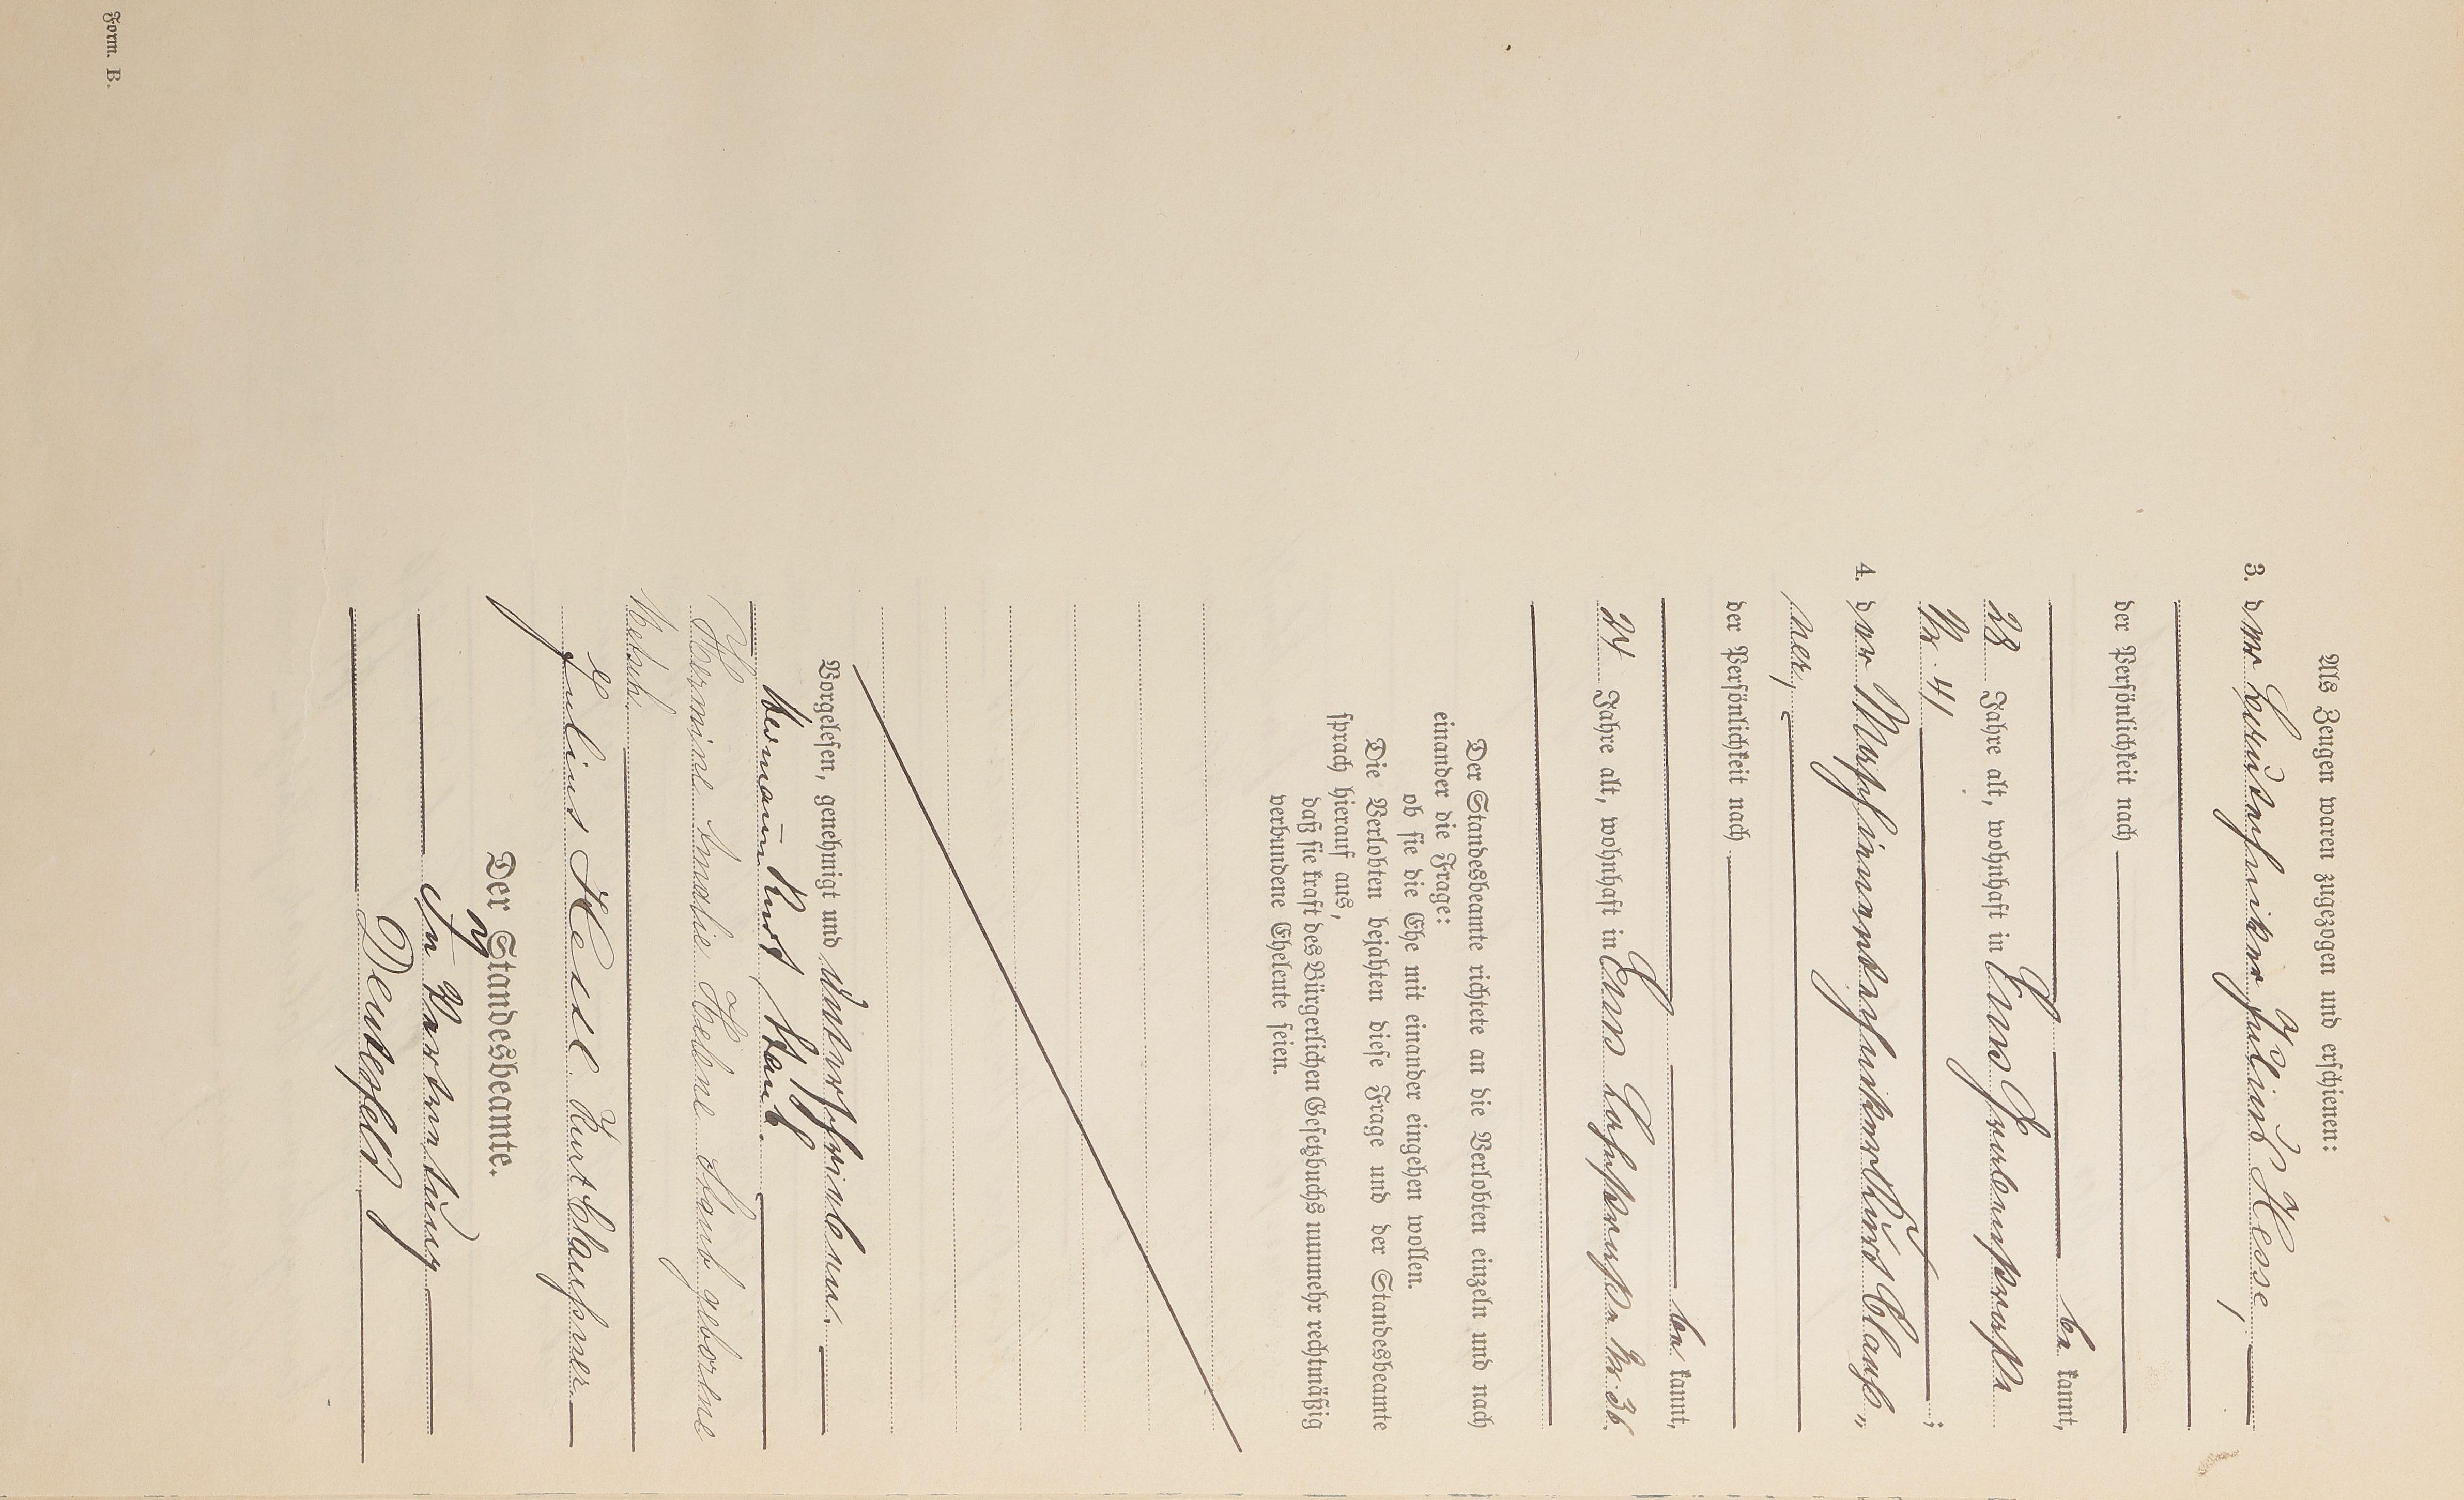 Als Zeugen waren zugezogen und erschienen:
3. der Handarbeiter Julius Hesse,
der Persönlichkeit nach
be kannt,
28 Jahre alt, wohnhaft in Gera
Nr. 41;
4. der Maschinentechniker Kurt Clauß„
ner,
der Persönlichkeit nach
be kannt,
24 Jahre alt, wohnhaft in Gera Nr. 36.
Der Standesbeamte richtete an die Verlobten einzeln und nach
einander die Frage:
ob sie die Ehe mit einander eingehen wollen.
Die Verlobten bejahten diese Frage und der Standesbeamte
sprach hierauf aus,
daß sie kraft des Bürgerlichen Gesetzbuchs nunmehr rechtmäßig
verbundene Eheleute seien.
Vorgelesen, genehmigt und unterschrieben.
Hermann Kurt Staub.
Hermine Amalie Helene Staub geborene
Metsch.
Julius Hesse. Kurt Claußner.
Der Standesbeamte.
In Vertretung
Denkefeld
Form. B.